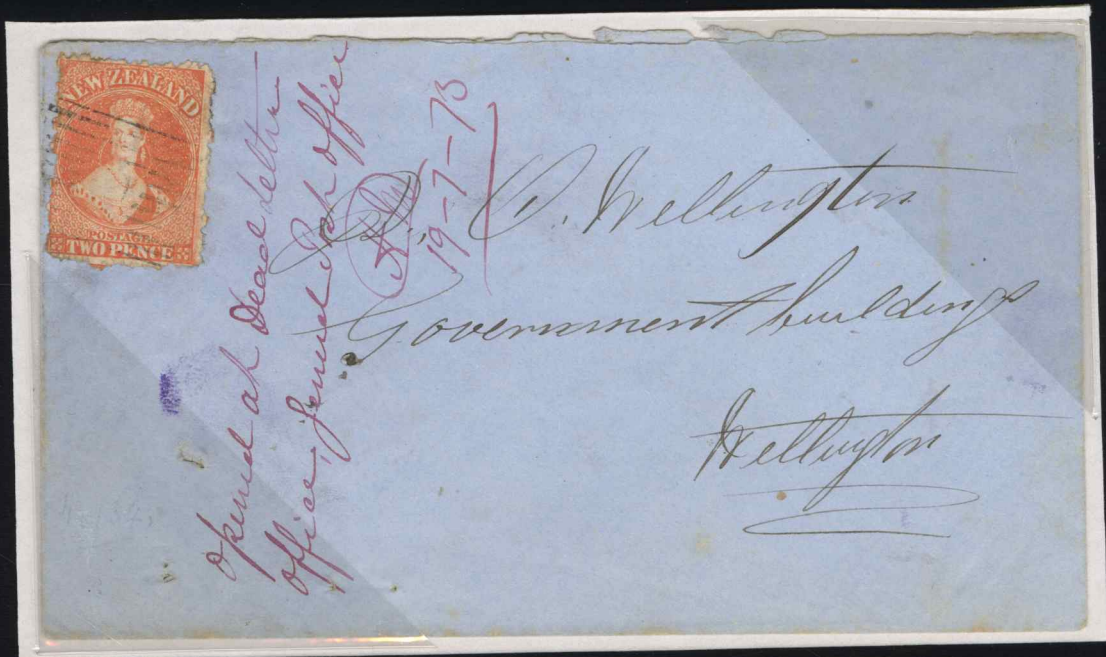 NEW ZEALAND
POSTAGE
TWO PENCE
opened at Dead letter
office, General Post office
19-7-73
O. Wellington
Government buildings
Wellington